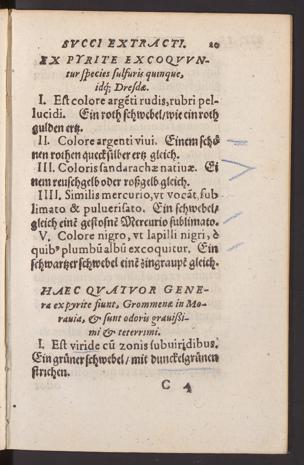 SVCCI EXTRACTI. 20
EX PYRITE EXCOQVVN-
tur species sulfuris quinque,
idq; Dresdæ.
I. Est colore argēti rudis, rubri pel-
lucidi. Ein roth schwebel / wie ein roth
gulden ertz.
II. Colore argenti viui. Einem schö
nen rothen quecksilber ertz gleich.
III. Coloris sandarachæ natiuæ. Ei
nem reuschgelb oder roßgelb gleich.
IIII. Similis mercurio, vt vocāt, sub
limato & puluerisato. Ein schwebel /
gleich einē gestosnē Mercurio sublimato.
V. Colore nigro, vt lapilli nigri, è
quibꝰ plumbū albū excoquitur. Ein
schwartzer schwebel einē zingraupē gleich.
HAEC QVATVOR GENE-
ra ex pyrite fiunt, Grommenæ in Mo-
rauia, & sunt odoris grauißi-
mi & teterrimi.
I. Est viride cū zonis subuiridibus.
Ein grüner schwebel / mit dunckelgrünen
strichen.
C 4